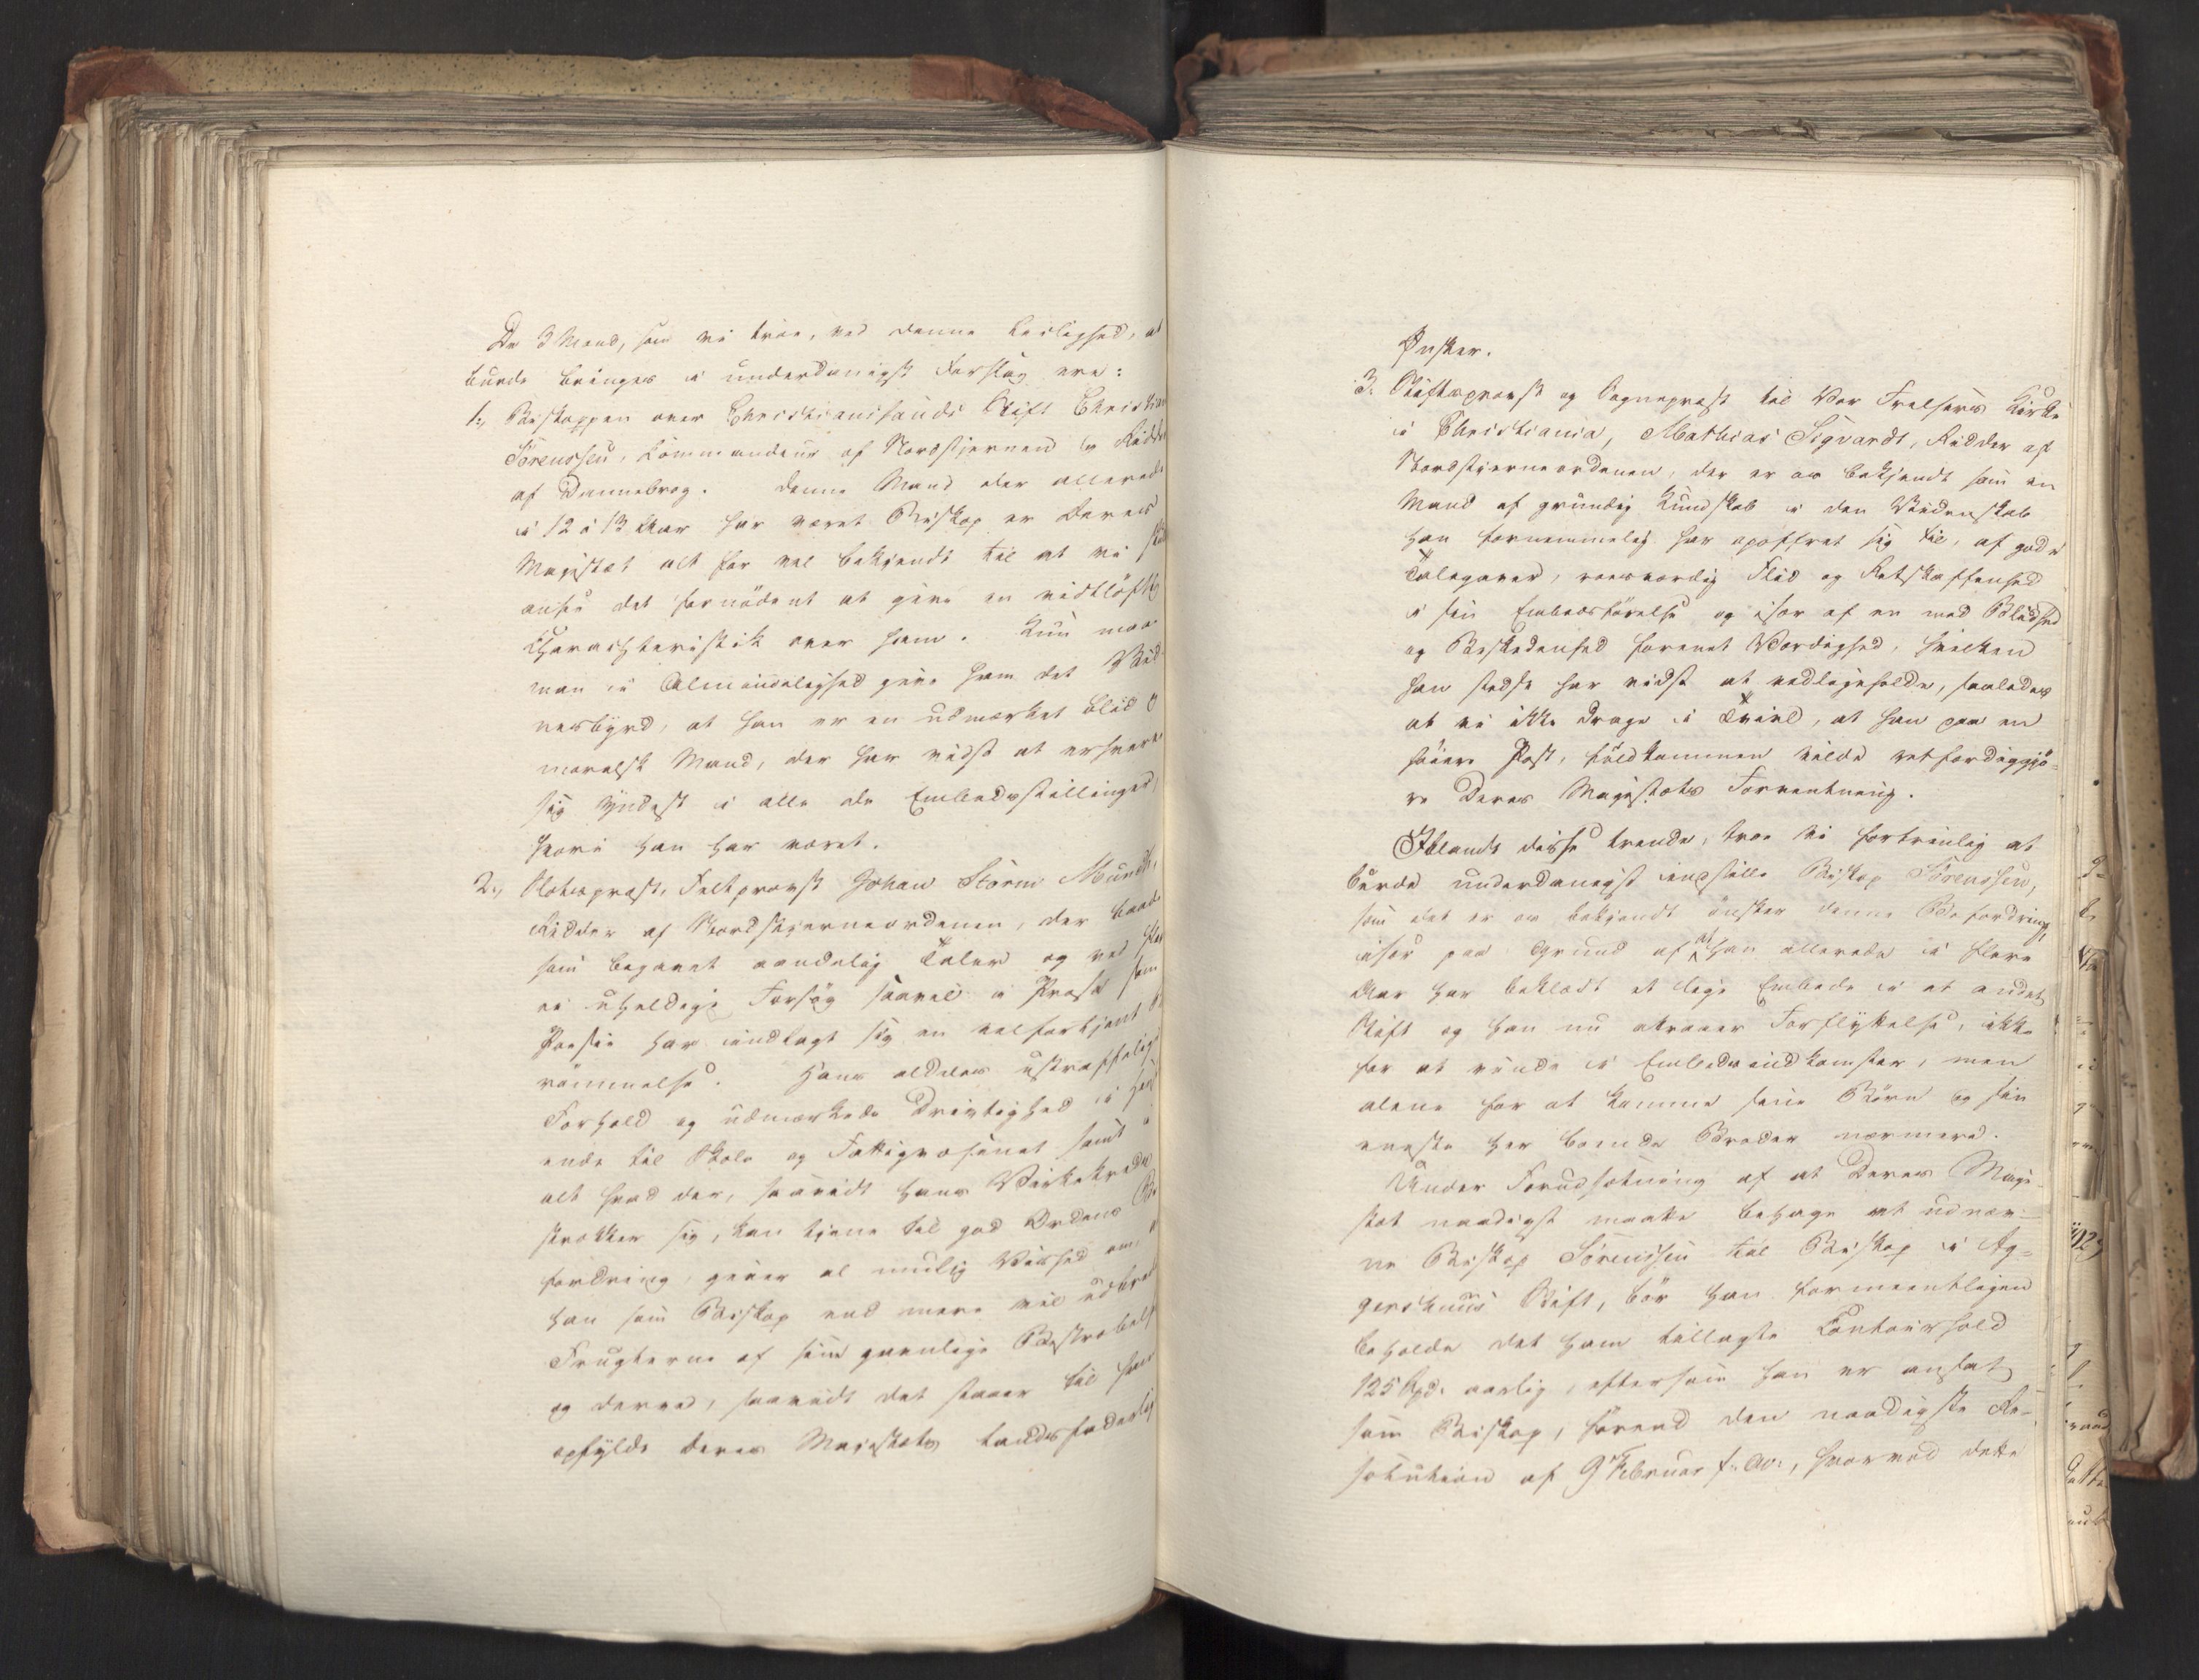 De 3 Mænd, som vi troe, ved denne Leilighed, at
burde bringes i underdanigst Forslag ere:
1., Biskoppen over Christiansands Stift Christian
Sörenssen, Commandeur af Nordstjernen og Ridder
af Dannebrog. Denne Mand der allerede
i 12 à 13 Aar har været Biskop er Deres
Majestæt alt for vel bekjendt til at vi skulde
ansee det fornödent at give en vidtlöftig
Charachteristik over ham. Kun maa
man i Almindelighed give ham det Vid-
nesbyrd, at han er en udmærket blid og
moralsk Mand, der har vidst at erhverve
sig Yndest i alle de Embedsstillinger,
hvori han har været.
2., Slotspræst, Feltprovst Johan Storm Munch,
Ridder af Nordstjerneordenen, der baade
som begavet aandelig Taler og ved flere
ei uheldige Forsög saavel i Prosa som
Poesie har indlagt sig en velfortjent Be-
römmelse. Hans aldeles ustraffelige
Forhold og udmærkede Drivtighed i Hen-
ende til Skole og Fattigvæsenet samt i
alt hvad der, saavidt hans Virkekreds
strækker sig, kan tjene til god Ordens Be-
fordring, giver al mulig Vished om, at
han som Biskop end mere vil udbrede
Frugterne af sine gavnlige Bestræbelser
og derved, saavidt det staaer til ham
opfylde Deres Majestæts landsfaderlige
Ønsker.
3. Stiftsprovst og Sognepræst til Vor Frelsers Kirke
i Christiania, Mathias Sigvardt, Ridder af
Nordstjerneordenen, der er os bekjendt som en
Mand af grundig Kundskab i den Videnskab
han fornemmelig har opoffret sig til, af gode
Talegaver, roesværdig Flid og Retskaffenhed
i sin Embedsförelse og især af en med Blidhed
og Beskedenhed forenet Værdighed, hvilken
han stedse har vidst at vedligeholde, saaledes
at vi ikke drage i Tvivl, at han paa en
höiere Post, fuldkommen vilde retfærdiggjö-
re Deres Majestæts Forventning.
Iblandt disse trende, troe vi fortrinlig at
burde underdanigst indstille Biskop Sörenssen,
som det er os bekjendt önsker denne Befordring,
især paa Grund af at han allerede i flere
Aar har beklædt et lige Embede i et andet
Stift og han nu attraaer Forflyttelse, ikke
for at vinde i Embedsindkomster, men
alene for at komme sine Börn og sin
eneste her boende Broder nærmere.
Under Forudsætning af at Deres Maje-
stæt naadigst maatte behage at udnæv-
ne Biskop Sörenssen til Biskop i Ag-
gershuus Stift, bör han formeentligen
beholde det ham tillagte Contoirhold
125 Spd. aarlig, eftersom han er ansat
som Biskop, förend den naadigste Re-
solution af 9 Februar f: A:, hvorved dette